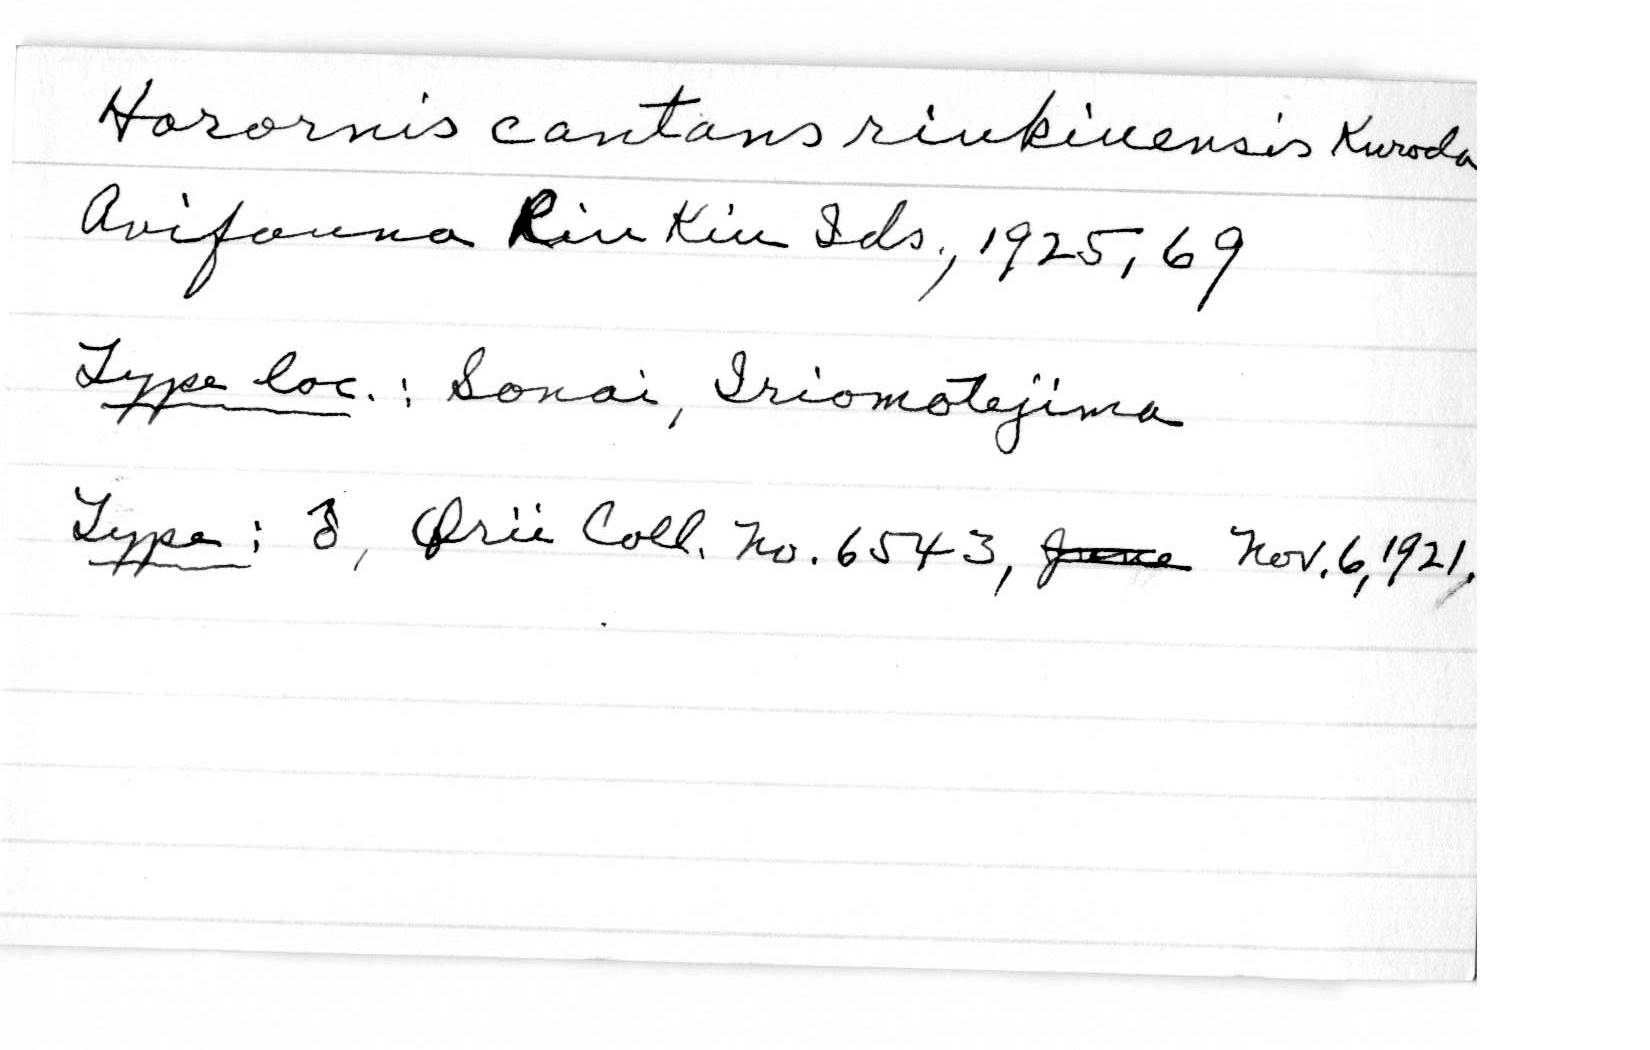 Horornis cantans riukiuensis Kuroda
Avifauna Riu Kiu Ids., 1925, 69
Type loc.: Sonai, Iriomotejima
Type: ♂, Orii Coll. No. 6543, June Nov. 6, 1921,